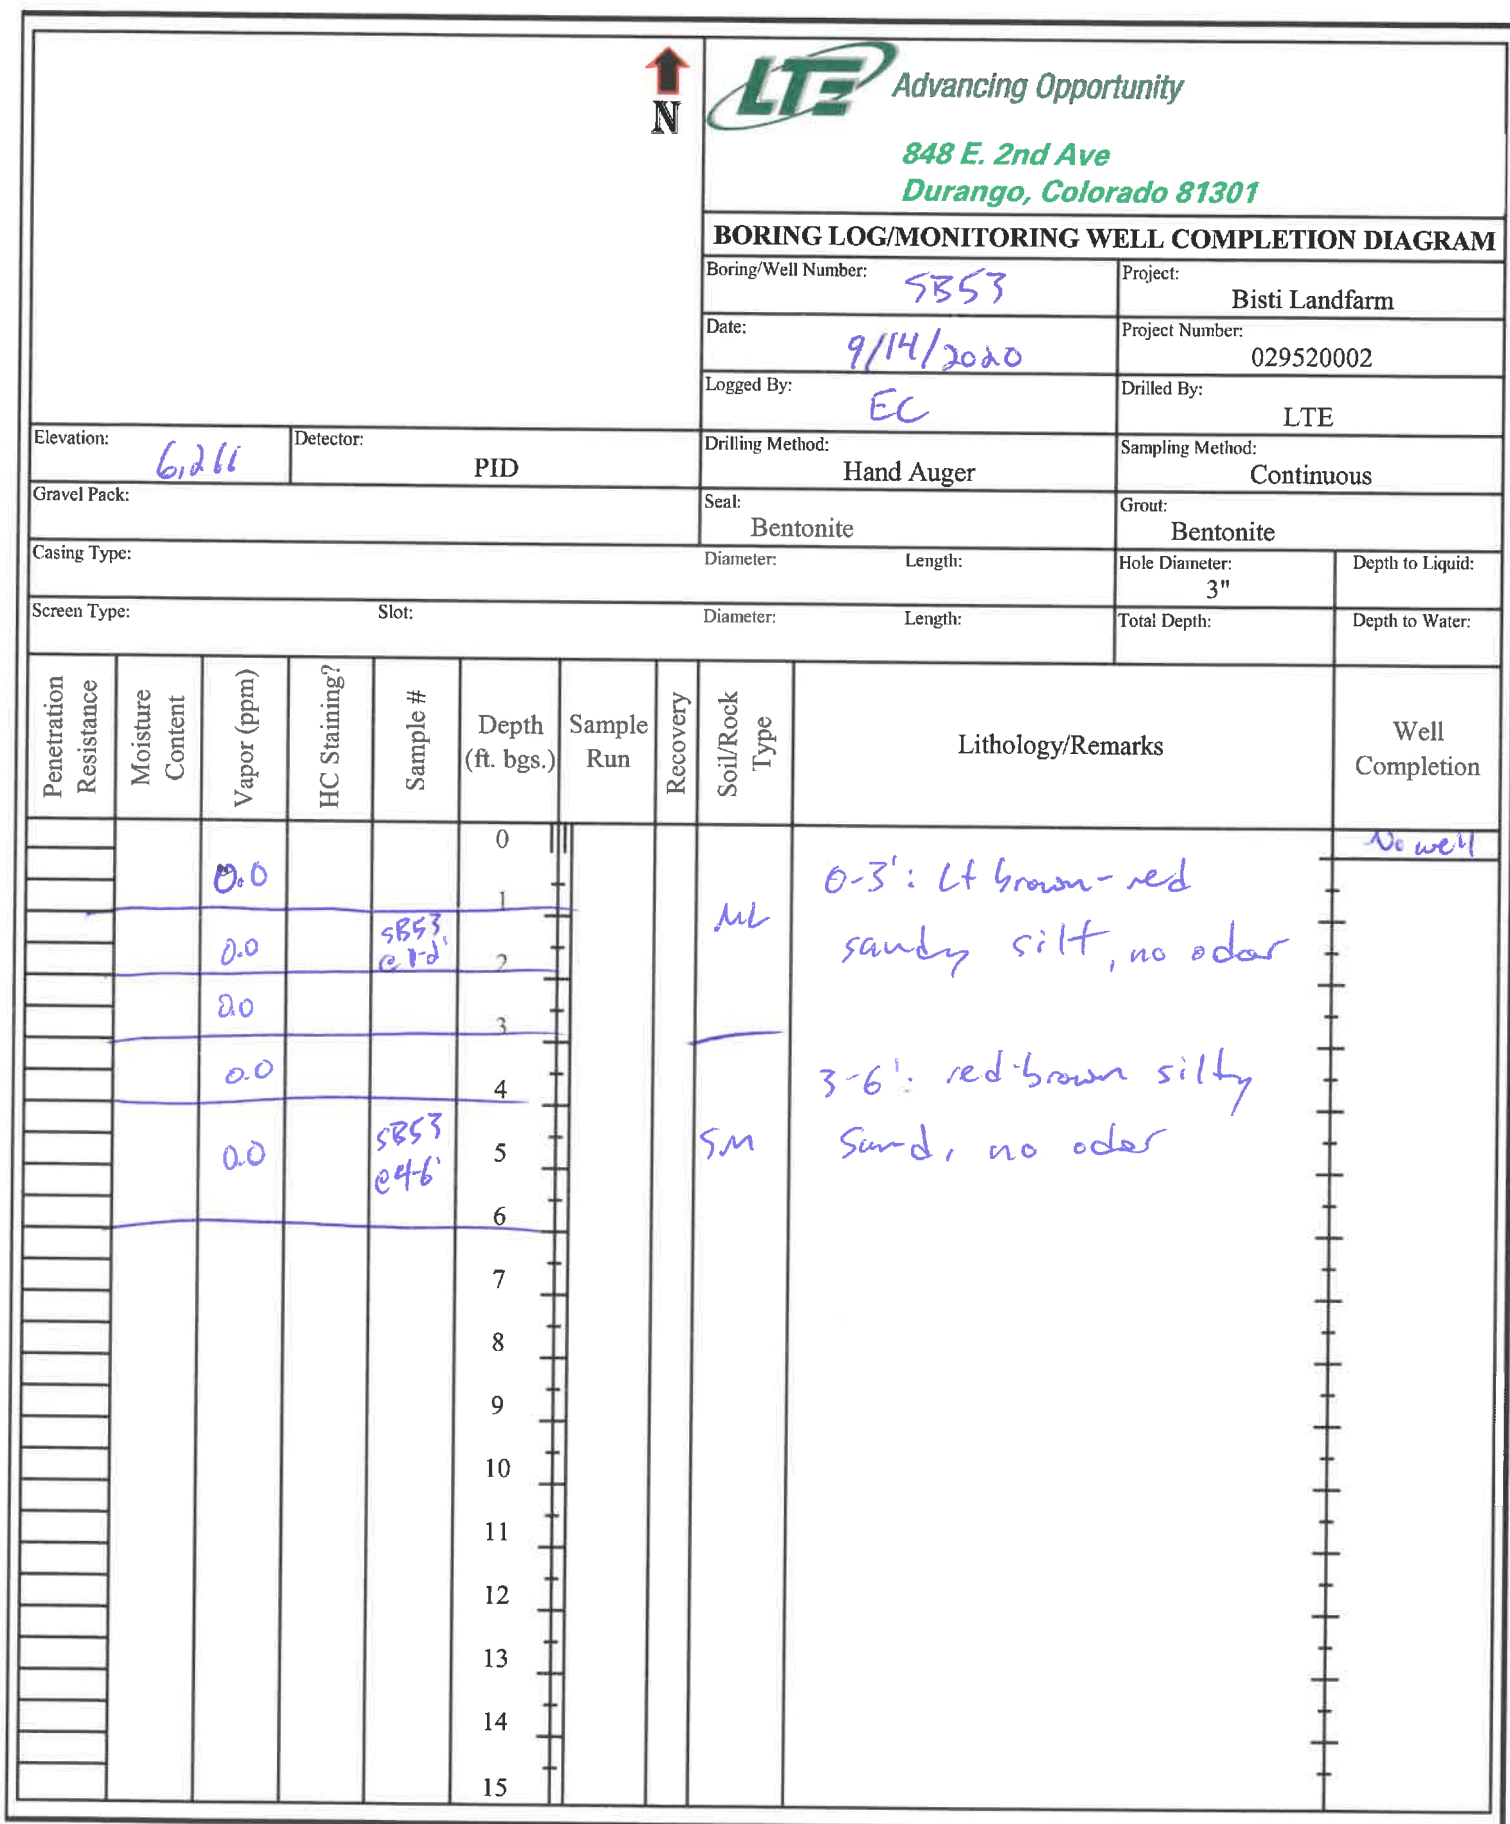 N
LTE Advancing Opportunity
848 E. 2nd Ave
Durango, Colorado 81301
BORING LOG/MONITORING WELL COMPLETION DIAGRAM
Boring/Well Number: SB53
Project: Bisti Landfarm
Date: 9/14/2020
Project Number: 029520002
Logged By: EC
Drilled By: LTE
Elevation:
Detector: PID
Drilling Method: Hand Auger
Sampling Method: Continuous
Gravel Pack:
Seal: Bentonite
Grout: Bentonite
Casing Type:
Diameter:
Length:
Hole Diameter: 3"
Depth to Liquid:
Screen Type:
Slot:
Diameter:
Length:
Total Depth:
Depth to Water:
Penetration Resistance
Moisture Content
Vapor (ppm)
HC Staining?
Sample #
Depth (ft. bgs.)
Sample Run
Recovery
Soil/Rock Type
Lithology/Remarks
Well Completion
0
No well
0.0
0-3': Lt brown-red
1
ML
0.0
SB53
@ 1-2'
sandy silt, no odor
2
0.0
3
0.0
3-6': red-brown silty
4
SB53
@4-6'
0.0
5
SM
sand, no odor
6
7
8
9
10
11
12
13
14
15